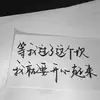 等我过了这个坎
我就要开心起来